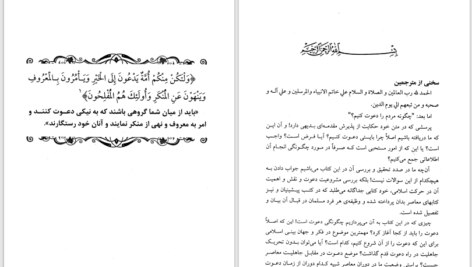 بسم الله الرحمن الرحیم
سخنی از مترجمین
الحمد لله رب العالمین و الصلاة و السلام علی خاتم الانبیاء والمرسلین و علی آله و
صحبه و من تبعهم الی یوم الدین.
اما بعد: "چگونه مردم را دعوت کنیم؟"
پرسشی که در متن خود حکایت از پذیرش مقدمه‌ی بدیهی دارد و آن این
که ما باید دعوت کنیم آیا فرض است؟ واجب
است؟ یا این که از امور مستحبی است که صرفاً در مورد چگونگی انجام آن
اطلاعاتی جمع می‌کنیم؟
آن چه ما در صدد تحقیق و بررسی آن در این کتاب می‌باشیم جواب دادن به
هیچکدام از این سوالات نیست! بلکه بررسی مشروعیت دعوت و نقش و اهمیت
آن در حرکت اسلامی، خود کتابی جداگانه می‌طلبد که در کتب پیشینیان و نیز
کتابهای معاصر بدان پرداخته شده و وظیفه‌ی هر فرد مسلمان در قبال آن بیان و
تفصیل شده است.
چیزی که در این کتاب به آن می‌پردازیم چگونگی دعوت است! این که اصلاً
دعوت را باید از کجا آغاز کرد؟ مهمترین موضوع در فکر و جهان بینی اسلامی
برای این که دعوت را از آن شروع کنیم، کدام است؟ آیا می‌توان بدون تحریک
جاهلیت در راه دعوت قدم گذاشت؟ موضع دعوت در مقابل جاهلیت معاصر
چیست؟ براستی وضعیت ما در دوران معاصر شبیه کدام دوران از زمان دعوت
﴿وَلْتَكُنْ مِنْكُمْ أُمَّةٌ يَدْعُونَ إِلَى الْخَيْرِ وَيَأْمُرُونَ بِالْمَعْرُوفِ
وَيَنْهَوْنَ عَنِ الْمُنْكَرِ وَأُولَئِكَ هُمُ الْمُفْلِحُونَ﴾
«باید از میان شما گروهی باشند که به نیکی دعوت کنند و
امر به معروف و نهی از منکر نمایند و آنان خود رستگارند».